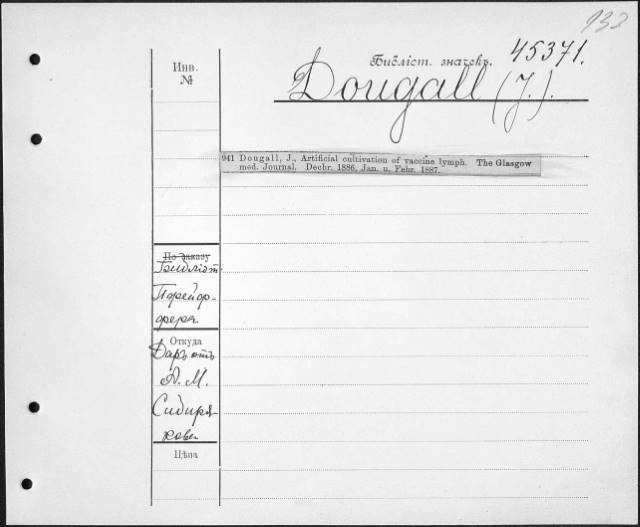 932
Инв.
№
Библіот. значекъ. 45371.
Dougall (J.).
941 Dougall, J., Artificial cultivation of vaccine lymph. The Glasgow
med. Journal. Decbr. 1886, Jan. u. Febr. 1887.
По заказу
Библіот.
Пфейф-
фера.
Откуда
Даръ отъ
А. М.
Сибиря-
кова
Цѣна